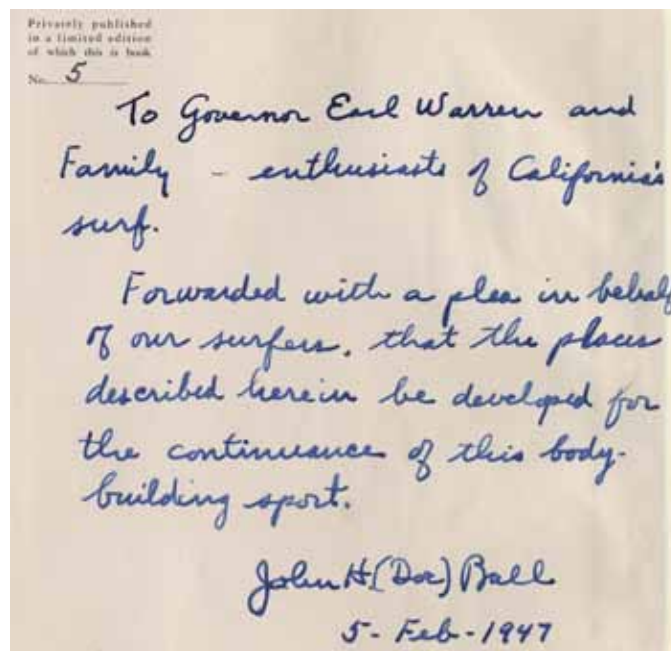 Privately published
in a limited edition
of which this is book
No. 5
To Governor Earl Warren and
Family - enthusiasts of California's
surf.
Forwarded with a plea in behalf
of our surfers, that the places
described herein be developed for
the continuance of this body-
building sport.
John H (Doc) Ball
5-Feb-1947